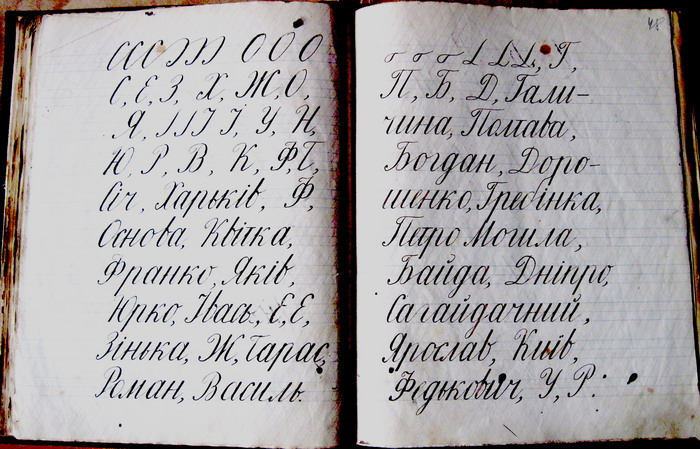 О О О
С, Є, З, Х, Ж, О,
Я, І І І Ї, У, Н,
Ю, Р, В, К, Ф, Г,
Січ, Харьків, Ф,
Основа, Квітка,
Франко, Яків,
Юрко, Івась, Є, Е,
Зінька, Ж, Тарас,
Роман, Василь.
48
Г,
П, Б, Д, Гали-
чина, Полтава,
Богдан, Доро-
шенко, Гребінка,
Петро Могила,
Байда, Дніпро,
Сагайдачний,
Ярослав, Київ,
Федькович, У, Р.